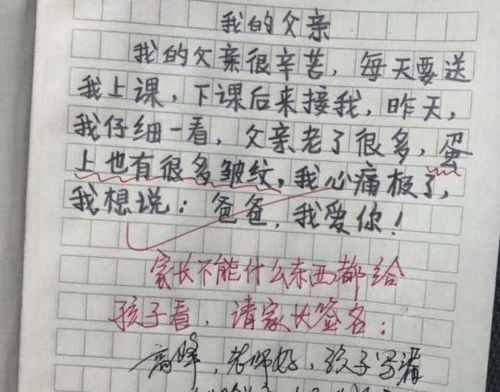 我的父亲
我的父亲很辛苦，每天要送
我上课，下课后来接我，昨天，
我仔细一看，父亲老了很多，蛋
上也有很多皱纹，我心痛极了，
我想说：爸爸，我爱你！
家长不能什么东西都给
孩子看，请家长签名：
高峰，老师好，孩子写错